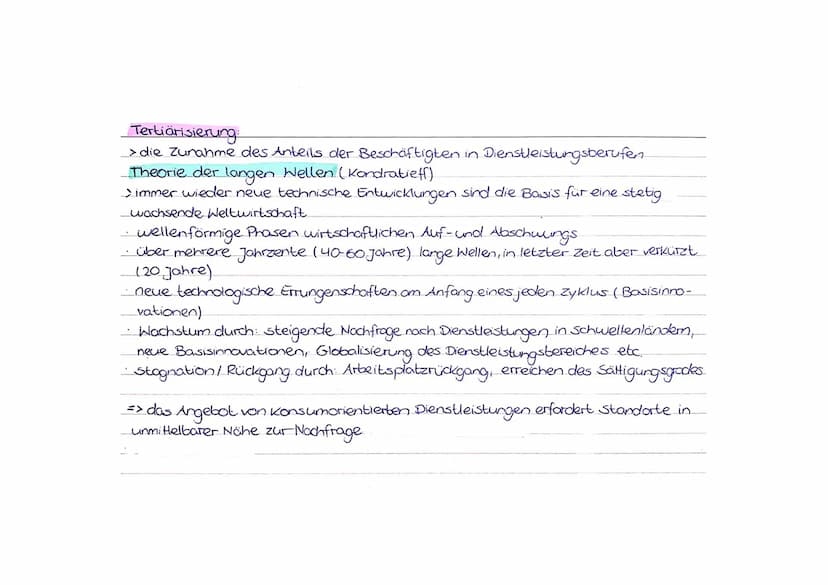 Tertiärisierung:
> die Zunahme des Anteils der Beschäftigten in Dienstleistungsberufen
Theorie der langen Wellen (Kondratieff)
> immer wieder neue technische Entwicklungen sind die Basis für eine stetig
wachsende Weltwirtschaft
· wellenförmige Phasen wirtschaftlichen Auf- und Abschwungs
· über mehrere Jahrzente (40-60 Jahre) lange Wellen, in letzter Zeit aber verkürzt
(20 Jahre)
· neue technologische Errungenschaften am Anfang eines jeden Zyklus (Basisinno-
vationen)
· Wachstum durch: steigende Nachfrage nach Dienstleistungen in Schwellenländern,
neue Basisinnovationen, Globalisierung des Dienstleistungsbereiches etc.
· Stagnation / Rückgang durch: Arbeitsplatzrückgang, erreichen des Sättigungsgrades
=> das Angebot von konsumorientierten Dienstleistungen erfordert Standorte in
unmittelbarer Nähe zur Nachfrage